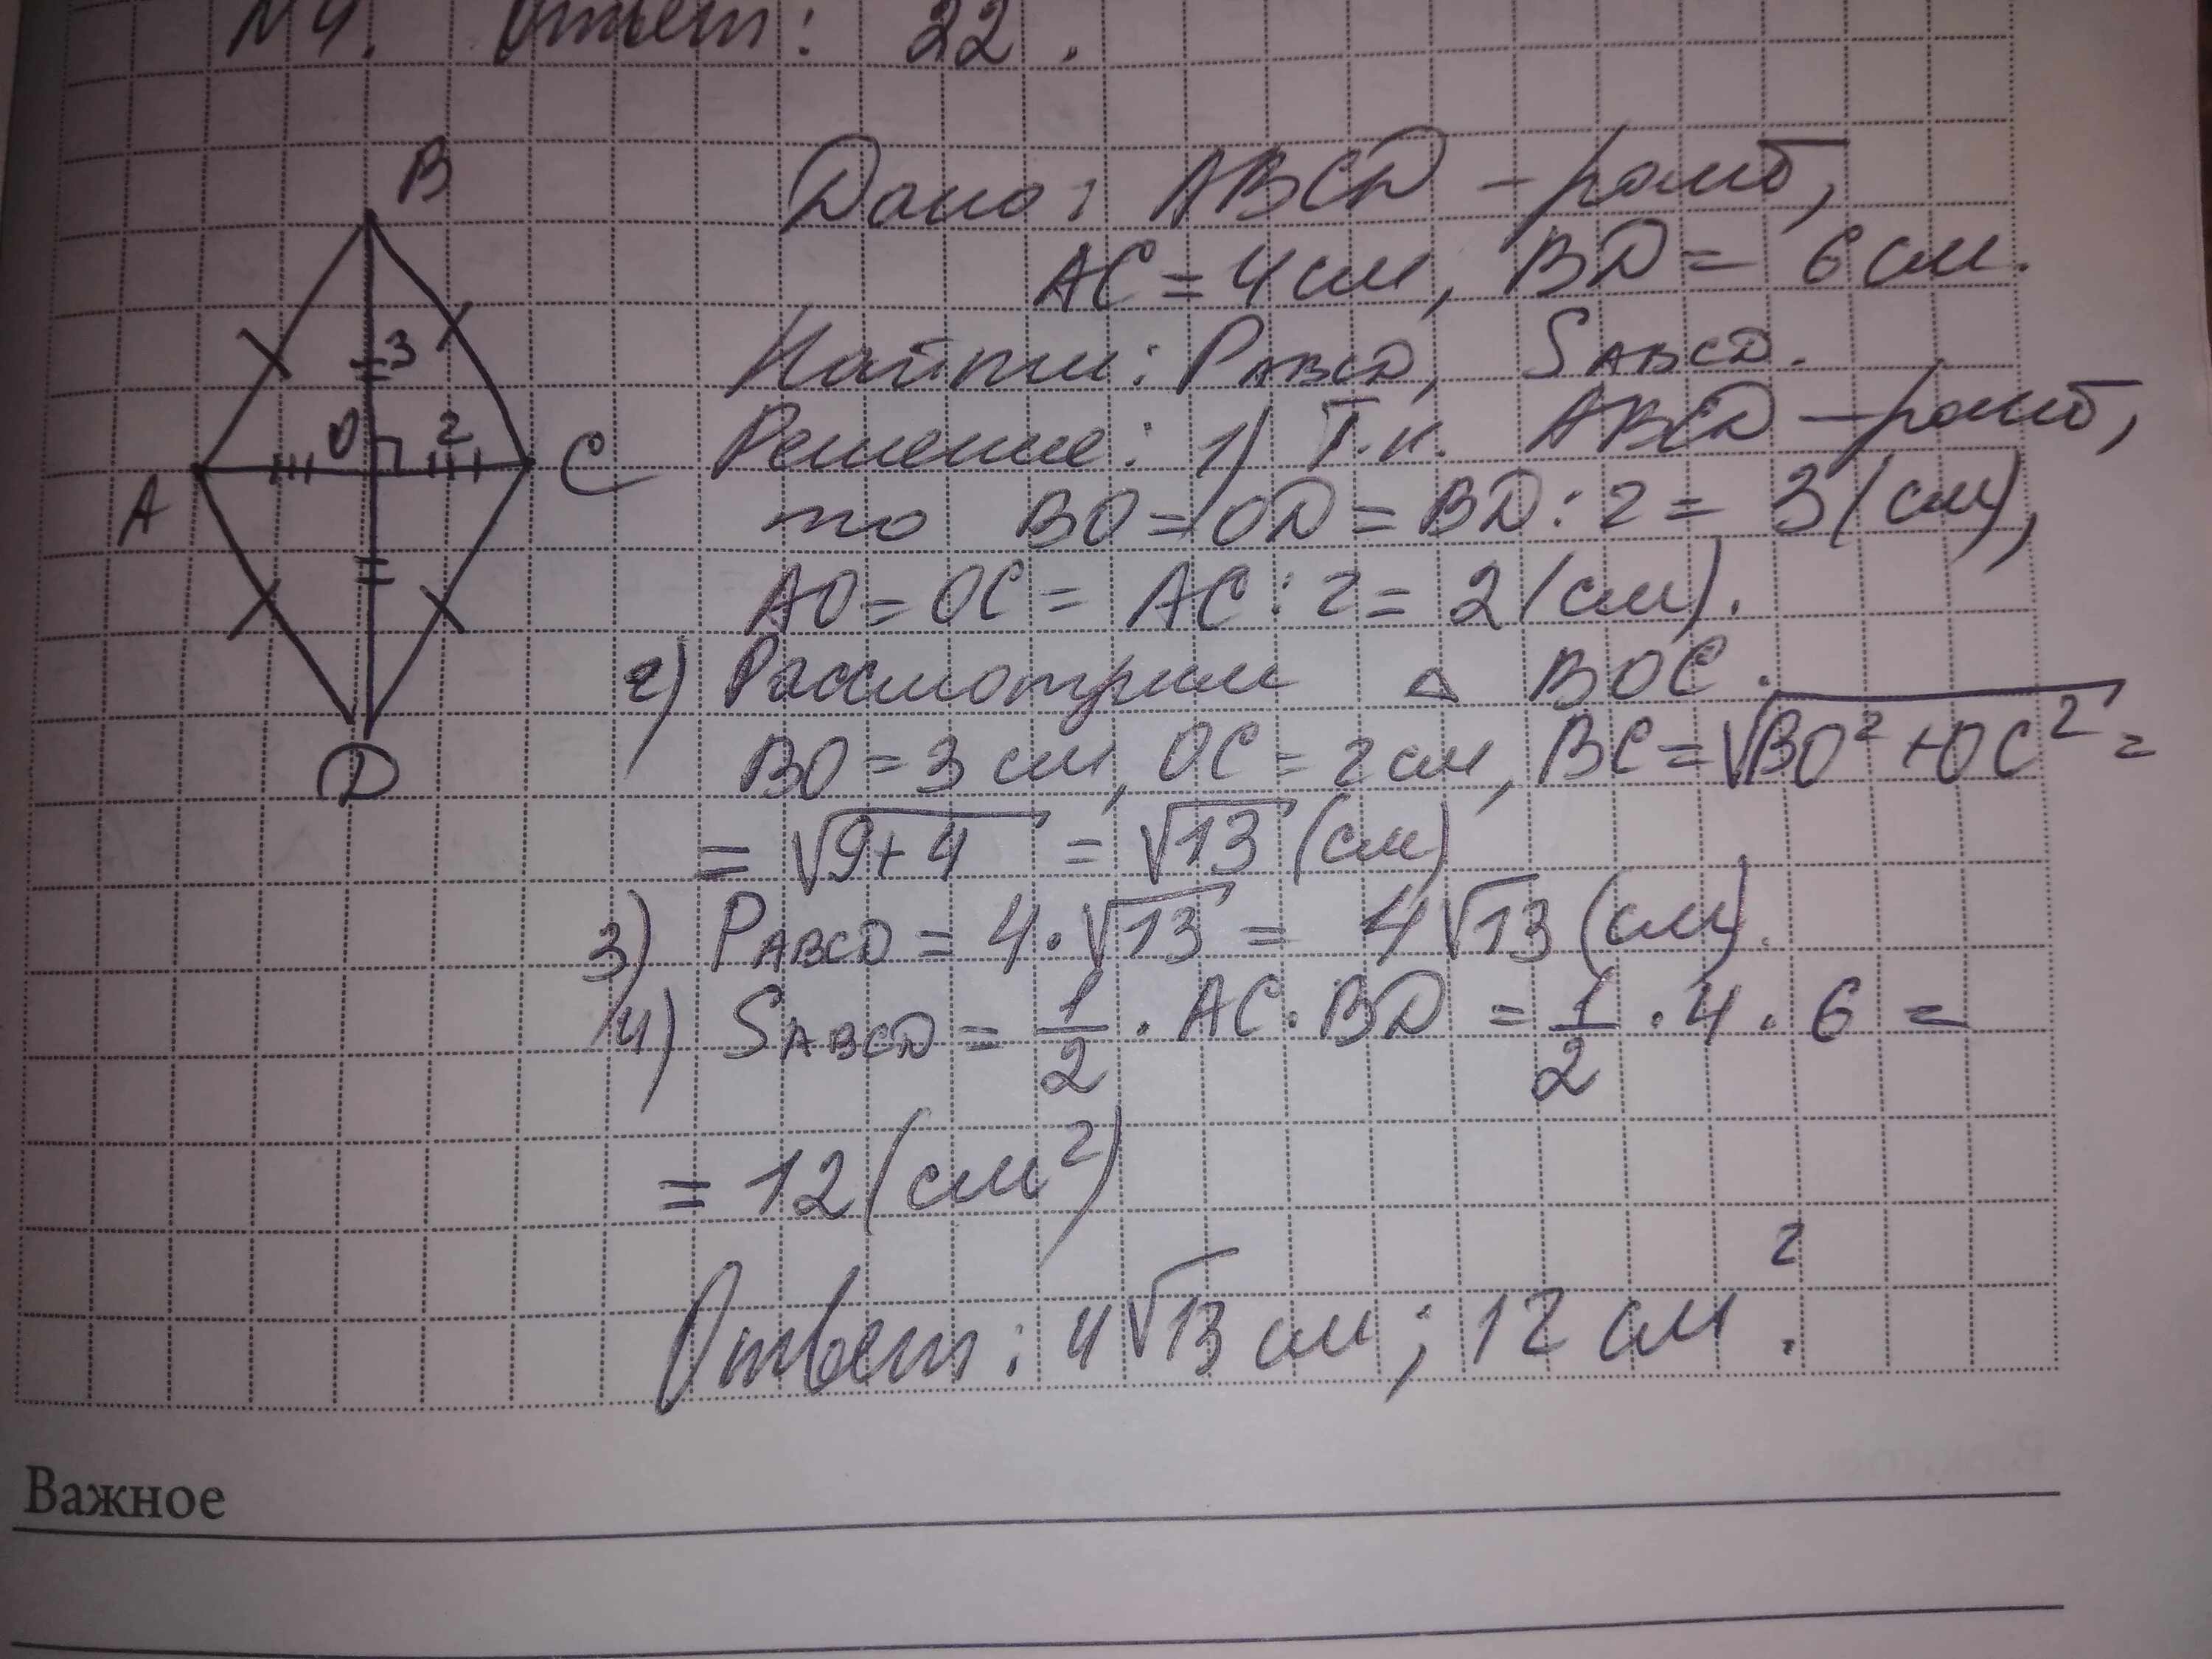 №4. Ответ: 22.
B
Дано: ABCD – ромб,
AC = 4 см, BD = 6 см.
3
Найти: PABCD, SABCD.
O 2
A
C
Решение: 1) Т.к. ABCD – ромб,
то BO = OD = BD : 2 = 3 (см),
AO = OC = AC : 2 = 2 (см).
D
2) Рассмотрим △ BOC.
BO = 3 см, OC = 2 см, BC = √BO² + OC² =
= √9 + 4 = √13 (см)
3) PABCD = 4 · √13 = 4√13 (см).
4) SABCD = 1/2 · AC · BD = 1/2 · 4 · 6 =
= 12 (см²)
Ответ: 4√13 см; 12 см².
Важное